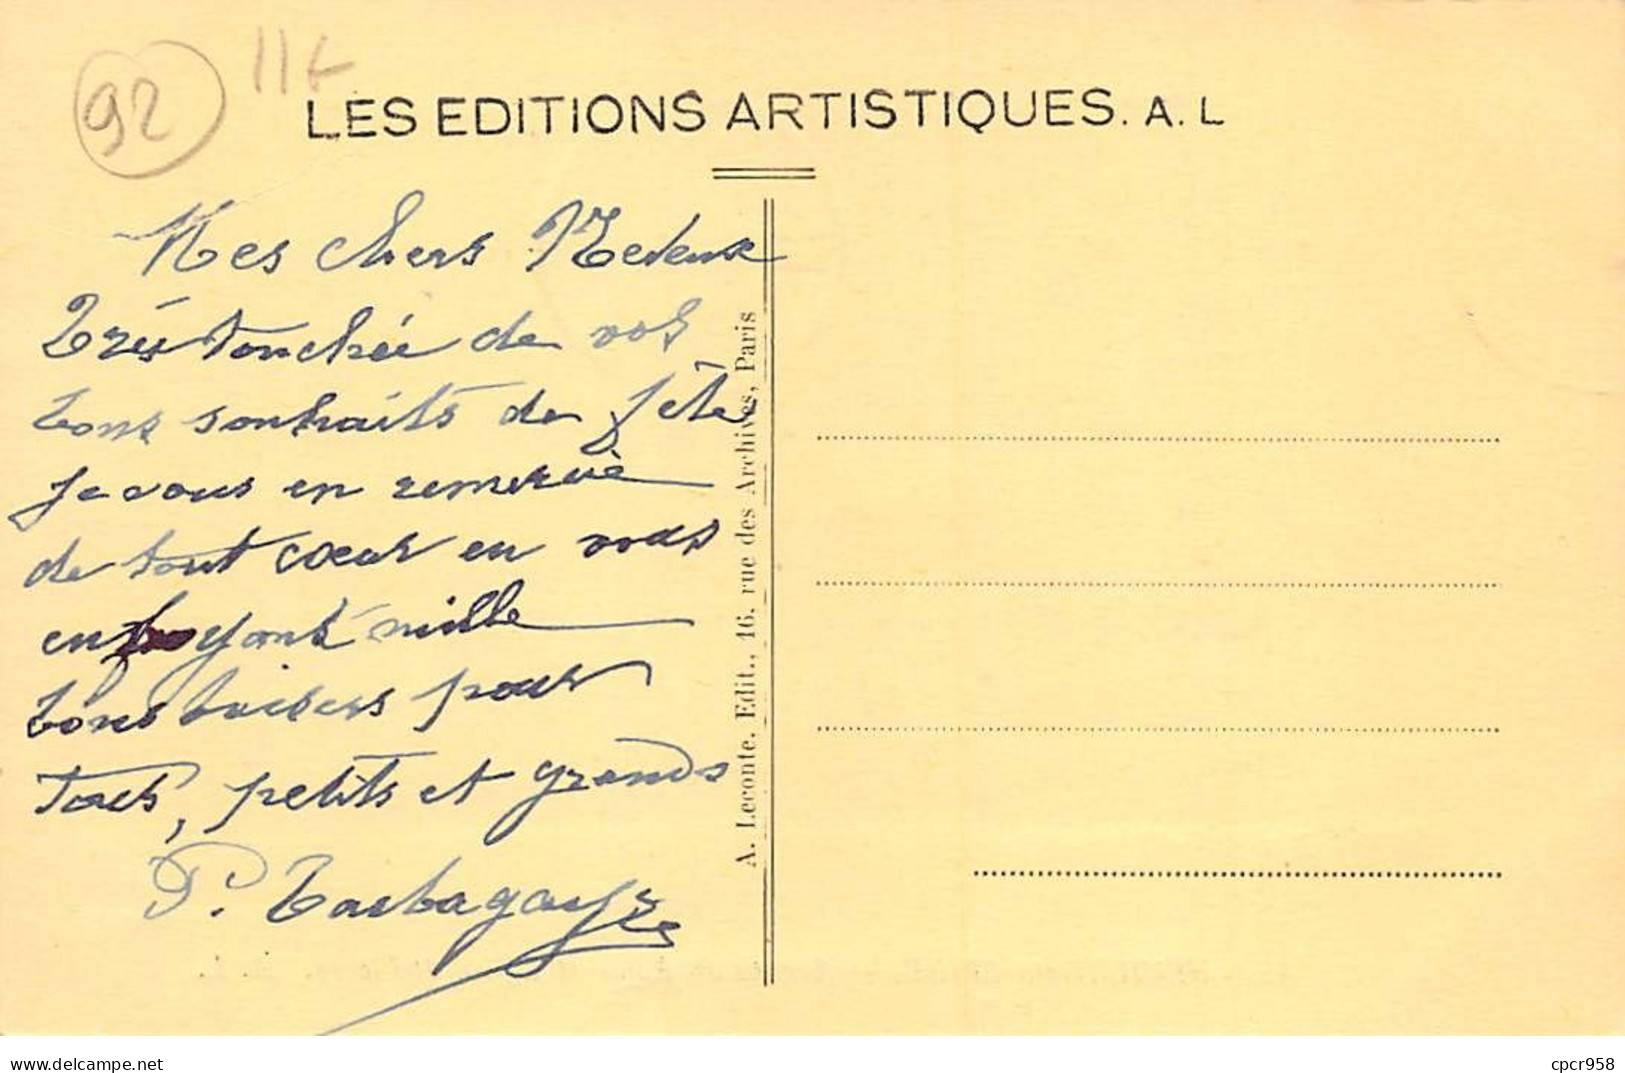 92
LES EDITIONS ARTISTIQUES. A. L
Mes chers
Très touchée de vos
bons souhaits de fête
je vous en remercie
de tout cœur en vous
envoyant mille
bons baisers pour
Tous, petits et grands
P.
A. Leconte, Edit., 16, rue des Archives, Paris
delcampe.net
cpcr958